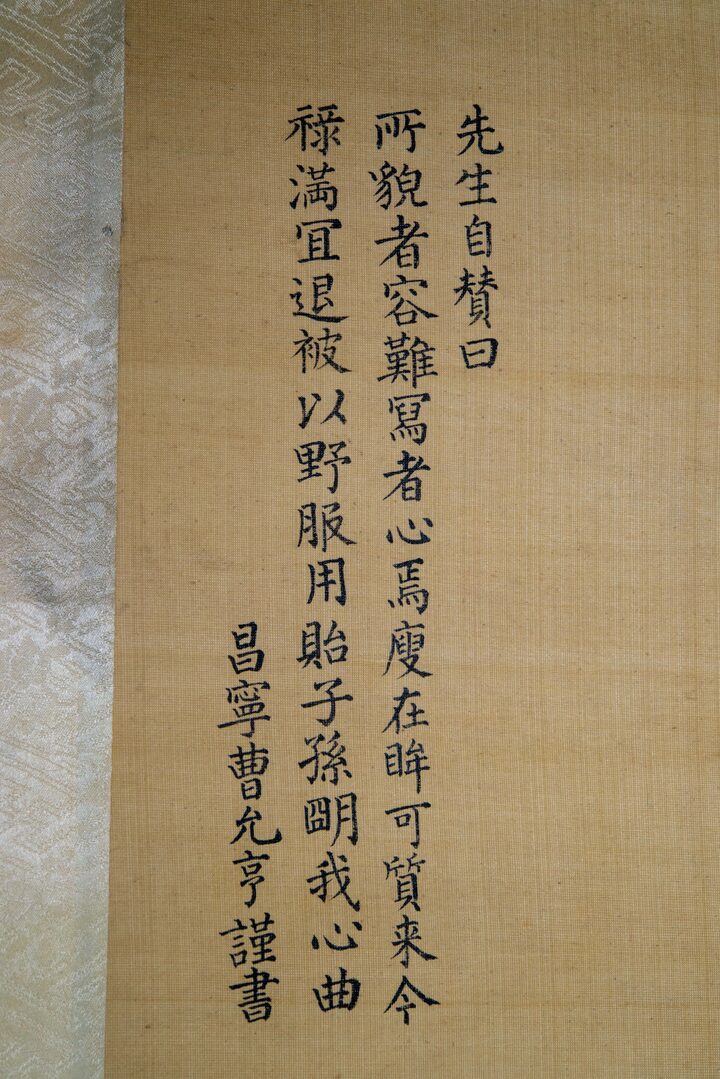 先生自賛曰
所貌者容難寫者心焉廋在眸可質来今
祿滿宜退被以野服用貽子孫朙我心曲
昌寧曺允亨謹書